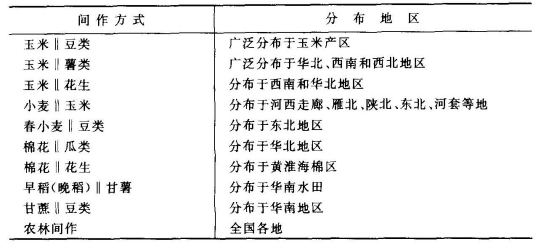 间作方式 分布地区
玉米‖豆类 广泛分布于玉米产区
玉米‖薯类 广泛分布于华北、西南和西北地区
玉米‖花生 分布于西南和华北地区
小麦‖玉米 分布于河西走廊、雁北、陕北、东北、河套等地
春小麦‖豆类 分布于东北地区
棉花‖瓜类 分布于华北地区
棉花‖花生 分布于黄淮海棉区
早稻(晚稻)‖甘薯 分布于华南水田
甘蔗‖豆类 分布于华南地区
农林间作 全国各地